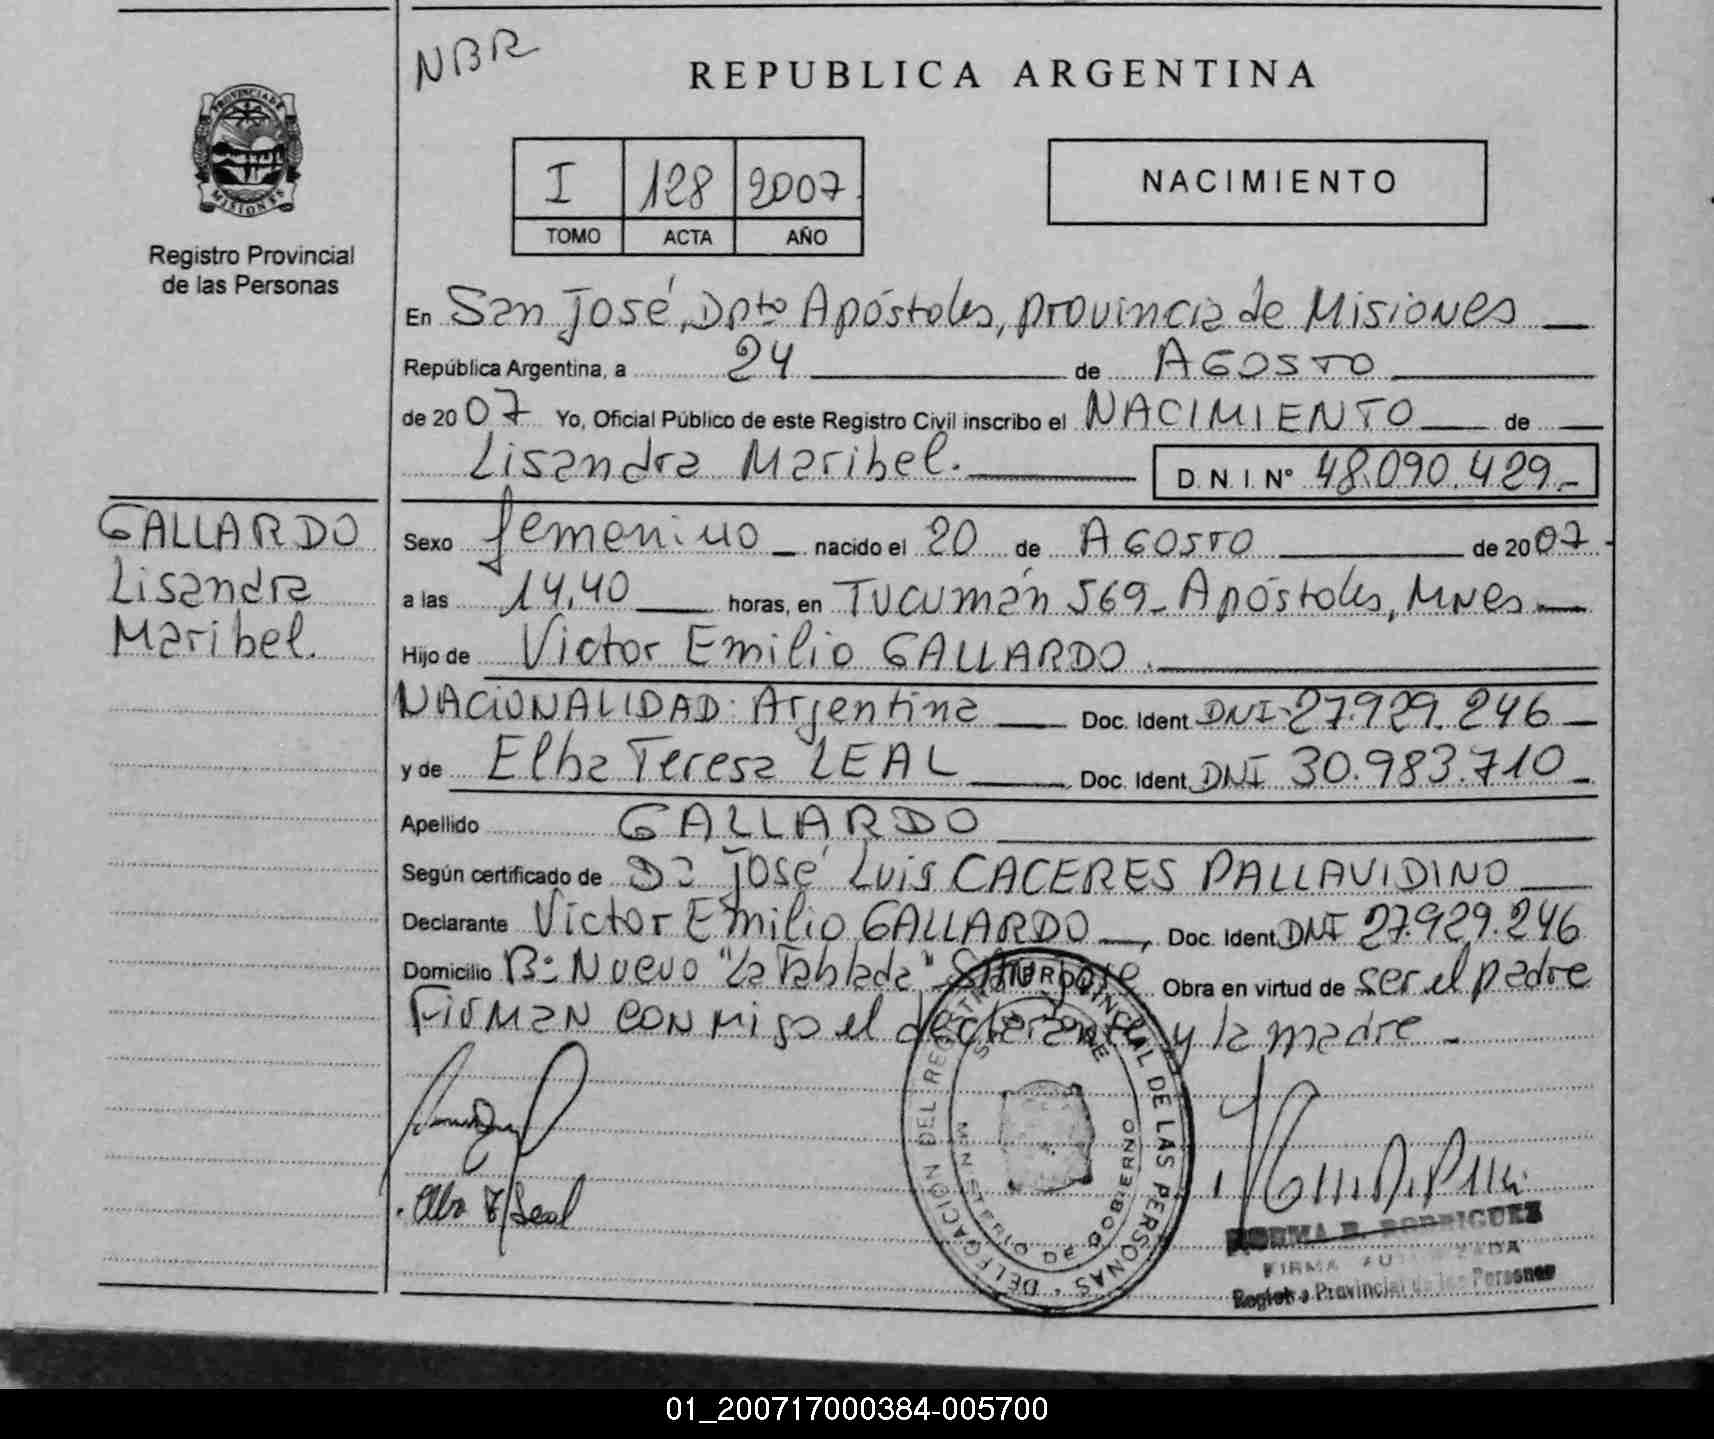 NBR
REPUBLICA ARGENTINA
PROVINCIA DE
MISIONES
Registro Provincial
de las Personas
I 128 2007
TOMO ACTA AÑO
NACIMIENTO
En San José, Dpto Apóstoles, provincia de Misiones
República Argentina, a 24 de AGOSTO
de 2007 Yo, Oficial Público de este Registro Civil inscribo el NACIMIENTO de
Lisandra Maribel. D.N.I. N° 48.090.429.-
GALLARDO
Lisandra
Maribel.
Sexo femenino nacido el 20 de AGOSTO de 2007
a las 14,40 horas, en Tucumán 569- Apóstoles, Mnes
Hijo de Victor Emilio GALLARDO.
NACIONALIDAD: Argentina Doc. Ident. DNI 27.929.246
y de Elba Teresa LEAL Doc. Ident. DNI 30.983.710
Apellido GALLARDO
Según certificado de Dr José Luis CACERES PALLAVIDINO
Declarante Victor Emilio GALLARDO, Doc. Ident. DNI 27.929.246
Domicilio B° Nuevo "La Tablada" San José Obra en virtud de ser el padre
Firman conmigo el declarante y la madre
DELEGACIÓN DEL REGISTRO PROVINCIAL DE LAS PERSONAS
SAN JOSE
MINISTERIO DE GOBIERNO
Elba T. Leal
NORMA B. RODRIGUEZ
FIRMA AUTORIZADA
Registro Provincial de las Personas
01_200717000384-005700